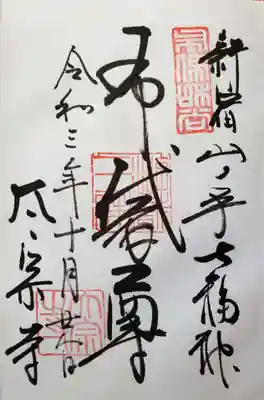 新宿山ノ手七福神
布袋尊
令和三年十月廿日
太宗寺